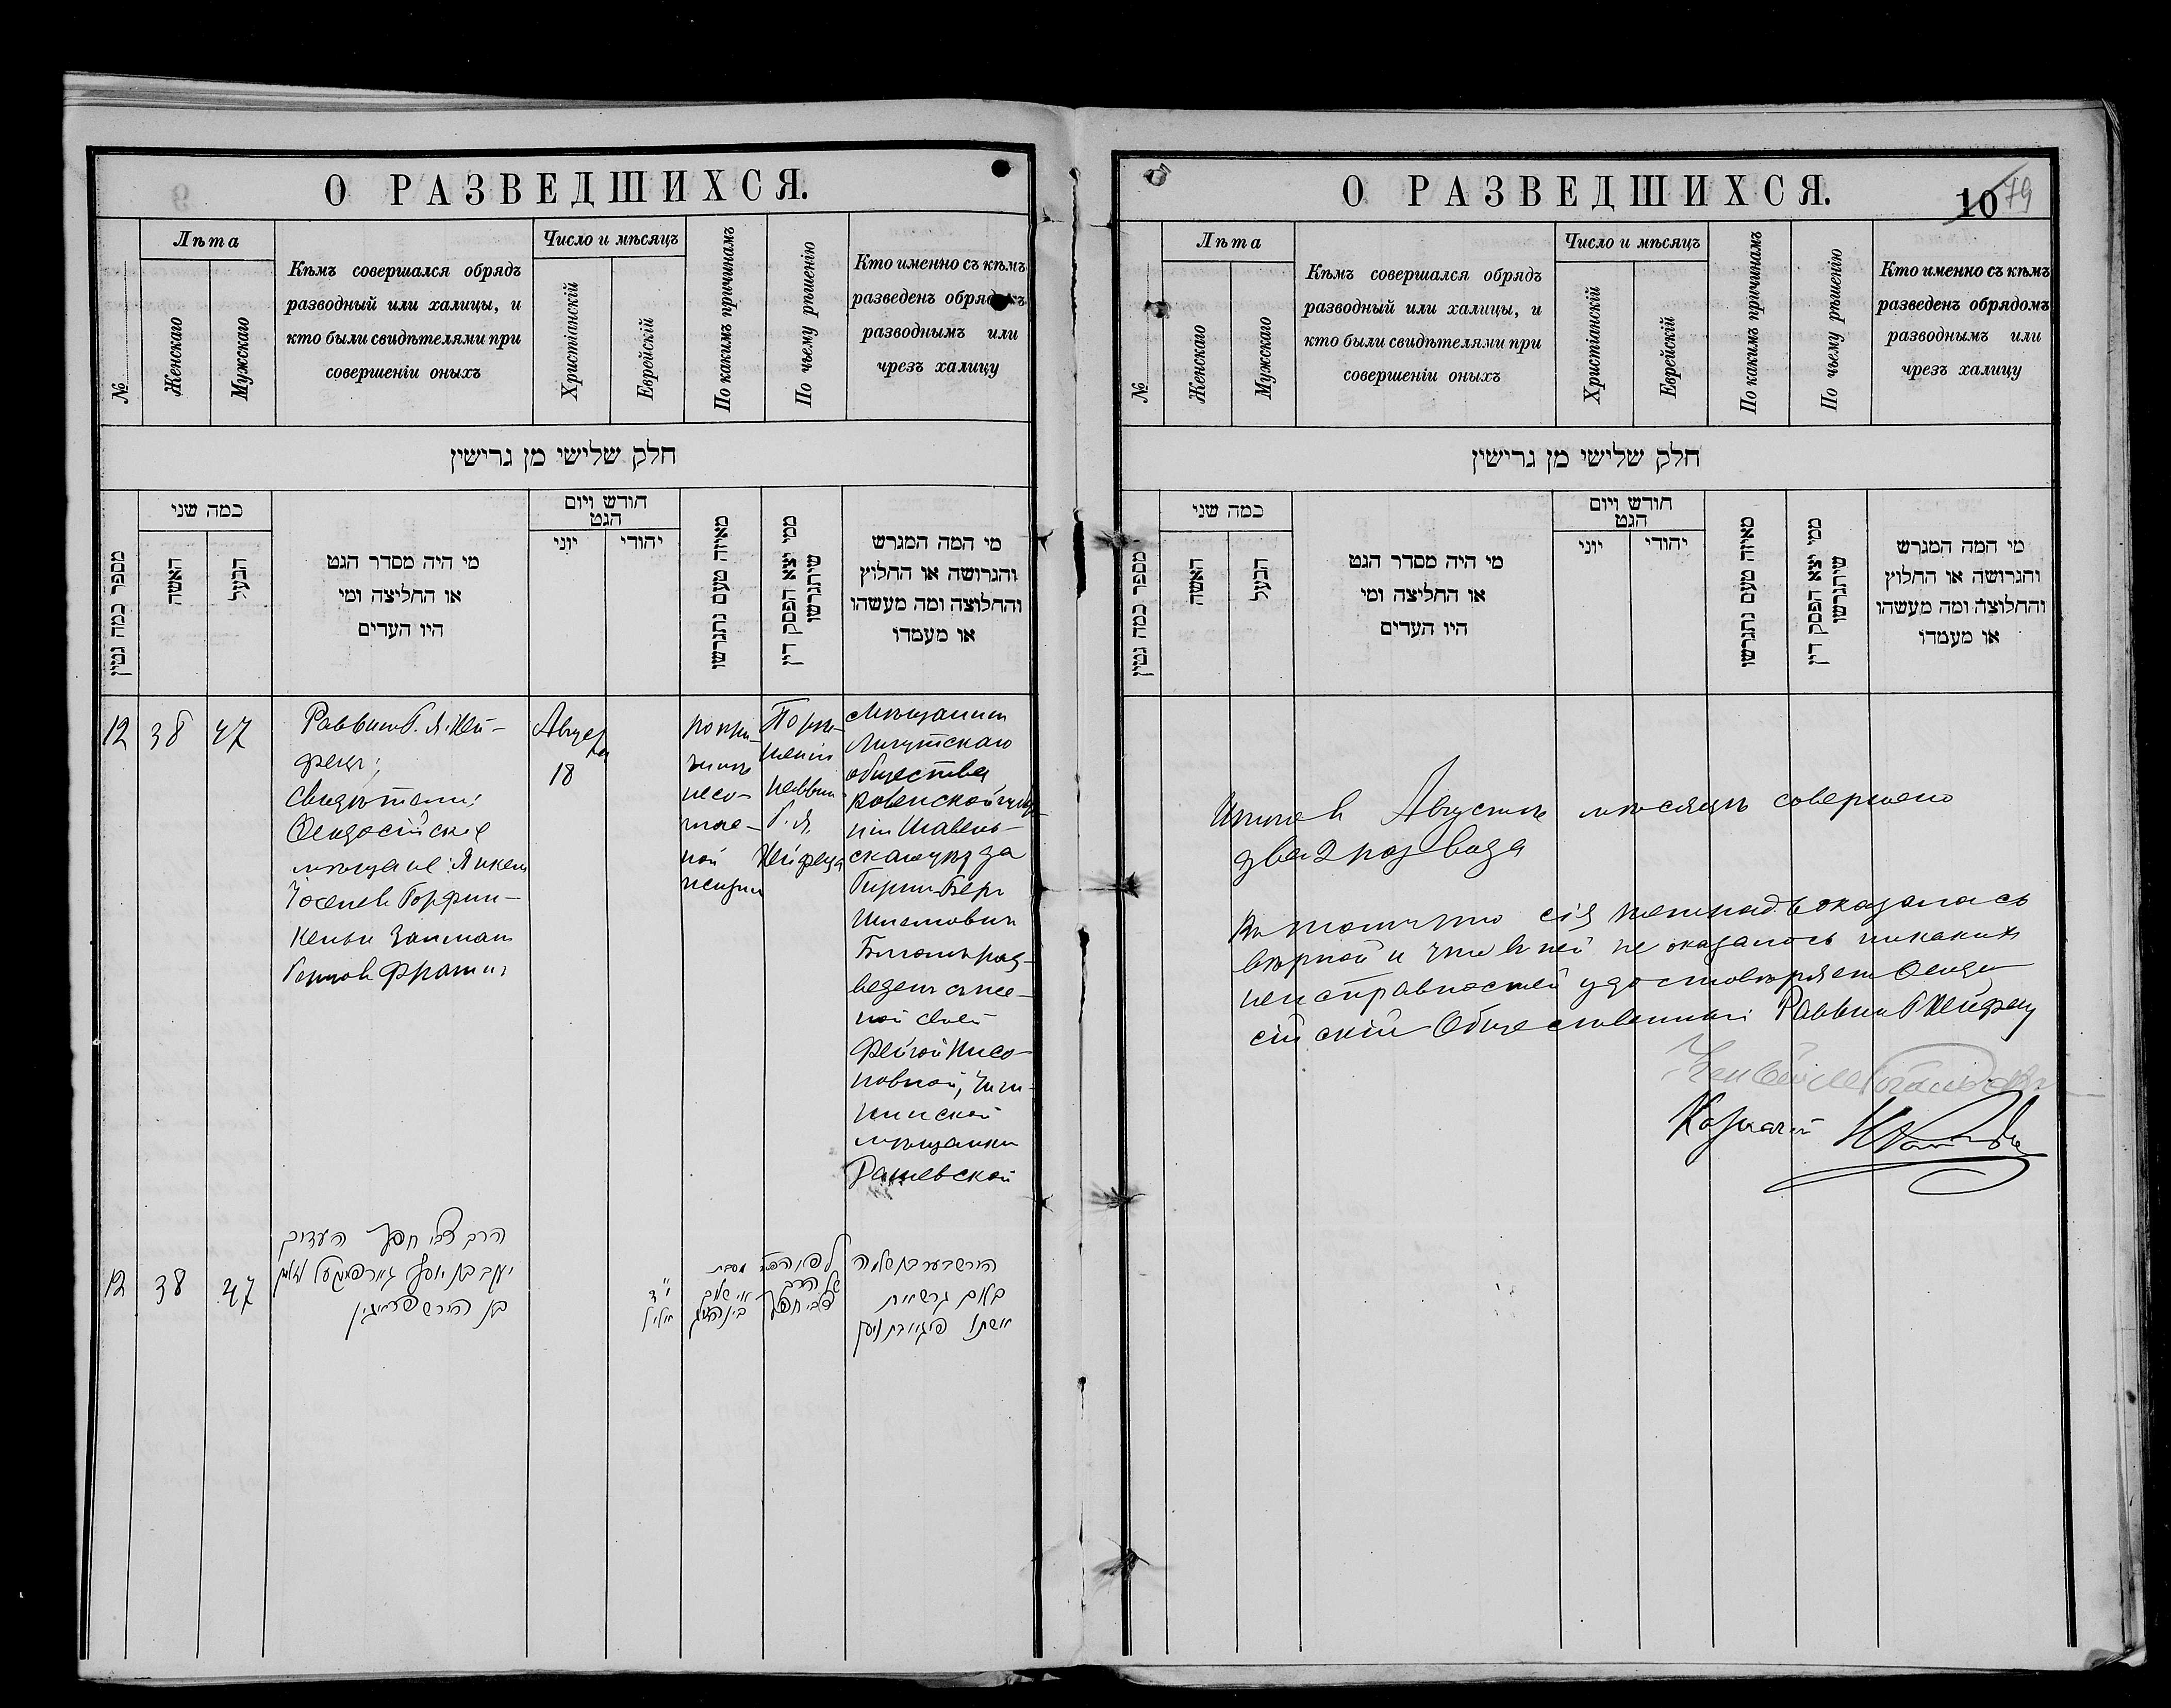 О РАЗВЕДШИХСЯ.
№
Лѣта
Женскаго
Мужскаго
Кѣмъ совершался обрядъ
разводный или халицы, и
кто были свидѣтелями при
совершеніи оныхъ
Число и мѣсяцъ
Христіанскій
Еврейскій
По какимъ причинамъ
По чьему рѣшенію
Кто именно съ кѣмъ
разведенъ обрядомъ
разводнымъ или
чрезъ халицу
חלק שלישי מן גרישין
מספר כמה גטין
כמה שני
האשה
הבעל
מי היה מסדר הגט
או החליצה ומי
היו העדים
חודש ויום
הגט
יוני
יהודי
מאיזה טעם נתגרשו
ממי יצא הפסק דין
שיתגרשו
מי המה המגרש
והגרושה או החלוץ
והחלוצה ומה מעשהו
או מעמדו
12
38
47
Раввинъ Г. Я. Хей-
фецъ;
Свидѣтели:
Ѳеодосійскіе
мѣщане: Янкель
Іоселевъ
Залманъ
Августа
18
по при-
чинѣ
несо-
глас-
ной
жизни
По рѣше-
нію
Раввина
Г. Я.
Хейфеца
Мѣщанинъ
общества
Ковенской губер-
ніи Шавель-
скаго уѣзда
Гиршъ-Беръ
Шлемовичъ
Блюмъ раз-
веденъ съ же-
ной своей
Фейгой Нисо-
новной,
мѣщанки
12
38
47
הרב צבי חפץ העדים
יעקב בן יוסף
בן הירש
י״ד
אלול
מסבת
אי שלום
בין
של הרב
צבי חפץ
הירש בער בן שלמה
בלום גרש את
אשתו פיגא בת ניסן
О РАЗВЕДШИХСЯ.
10 79
№
Лѣта
Женскаго
Мужскаго
Кѣмъ совершался обрядъ
разводный или халицы, и
кто были свидѣтелями при
совершеніи оныхъ
Число и мѣсяцъ
Христіанскій
Еврейскій
По какимъ причинамъ
По чьему рѣшенію
Кто именно съ кѣмъ
разведенъ обрядомъ
разводнымъ или
чрезъ халицу
חלק שלישי מן גרישין
מספר כמה גטין
כמה שני
האשה
הבעל
מי היה מסדר הגט
או החליצה ומי
היו העדים
חודש ויום
הגט
יוני
יהודי
מאיזה טעם נתגרשו
ממי יצא הפסק דין
שיתגרשו
מי המה המגרש
והגרושה או החלוץ
והחלוצה ומה מעשהו
או מעמדו
Итого въ Августѣ мѣсяцѣ совершено
два 2 развода
Въ томъ что сія тетрадь оказалась
вѣрной и что въ ней не оказалось никакихъ
неисправностей удостовѣряетъ Ѳеодо-
сійскій Общественный Раввинъ Г Хейфецъ
Казначей